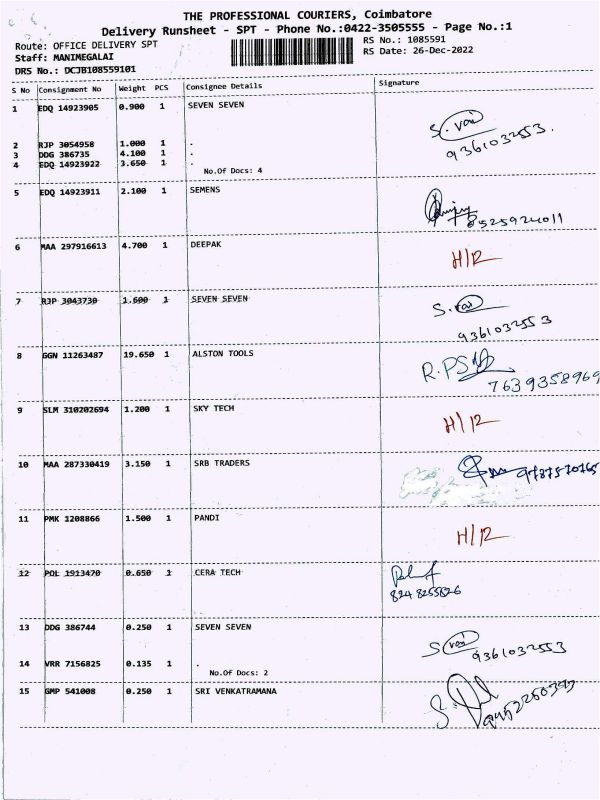 THE PROFESSIONAL COURIERS, Coimbatore
Delivery Runsheet - SPT - Phone No.:0422-3505555 - Page No.:1
Route: OFFICE DELIVERY SPT
RS No.: 1085591
Staff: MANIMEGALAI
RS Date: 26-Dec-2022
DRS No.: DCJB108559101
S No Consignment No Weight PCS Consignee Details Signature
1 EDQ 14923905 0.900 1 SEVEN SEVEN
S.
9361032553.
2 RJP 3054958 1.000 1 .
3 DDG 386735 4.100 1 .
4 EDQ 14923922 3.650 1 .
No.Of Docs: 4
5 EDQ 14923911 2.100 1 SEMENS
8525924011
6 MAA 297916613 4.700 1 DEEPAK
H/12
7 RJP 3043730 1.600 1 SEVEN SEVEN
S.
9361032553
8 GGN 11263487 19.650 1 ALSTON TOOLS
R.PS
7639358969
9 SLM 310202694 1.200 1 SKY TECH
H/12
10 MAA 287330419 3.150 1 SRB TRADERS
11 PMK 1208866 1.500 1 PANDI
H/12
12 POL 1913470 0.650 1 CERA TECH
8248255826
13 DDG 386744 0.250 1 SEVEN SEVEN
S
9361032553
14 VRR 7156825 0.135 1 .
No.Of Docs: 2
15 GMP 541008 0.250 1 SRI VENKATRAMANA